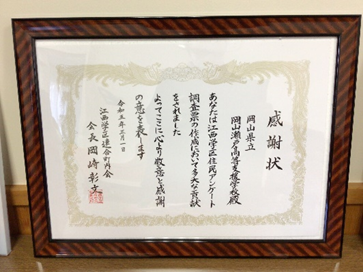 感謝状
岡山県立
岡山瀬戸高等支援学校殿
あなたは江西学区住民アンケート
調査票の作成において多大な貢献
をされました
よってここに心より敬意と感謝
の意を表します
令和五年三月一日
江西学区連合町内会
会長 岡崎彰文